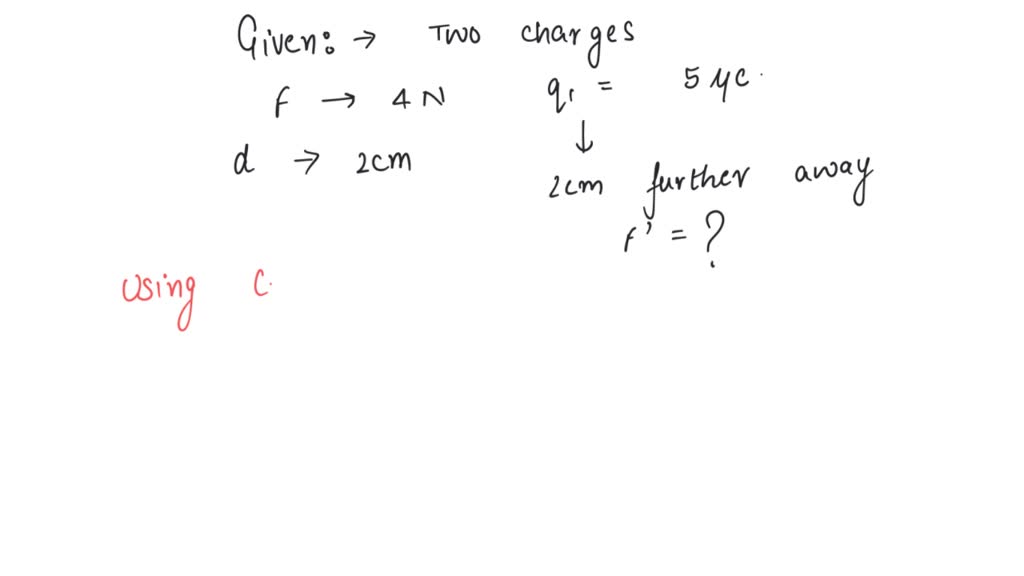 Given: → Two charges
F → 4 N q1 = 5 μC.
↓
d → 2cm 2cm further away
F' = ?
Using C